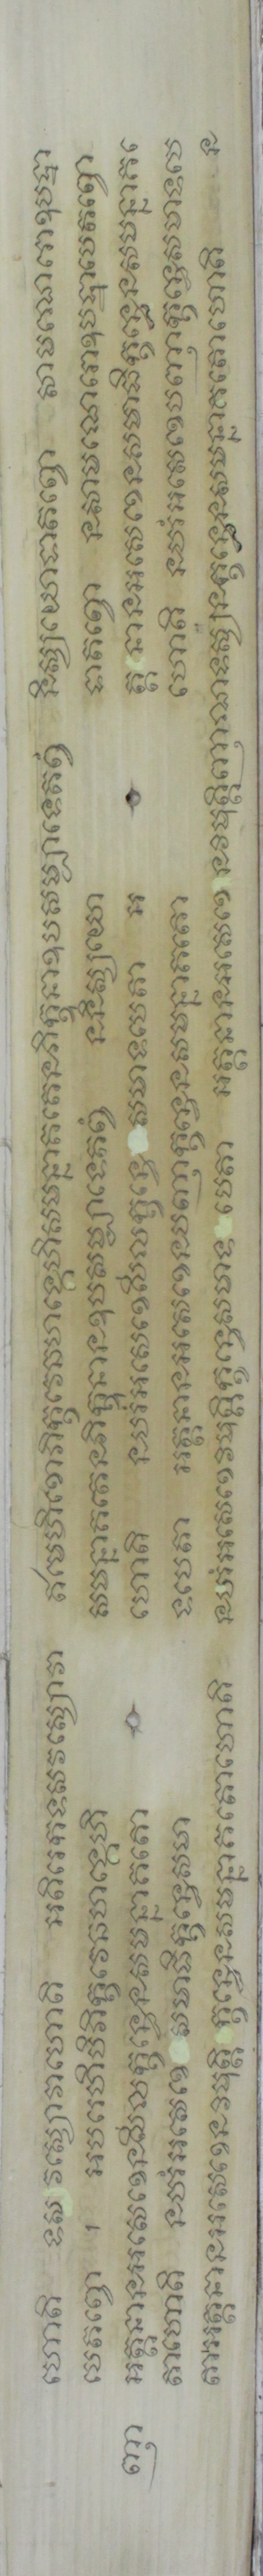 ហោតិ ទសវស្សោវាហោតិ អតិរេកទសវស្សោវា ឥមេហិខោភិក្ខវេបញ្ចហង្គេហិសមន្នាគតេនភិក្ខុនាឧបសម្បាទេតព្វំ និស្សយោទាតព្វោ សាមណេរោឧបដ្ឋា
បេតព្វោ ។ អបរេហិបិភិក្ខវេបញ្ចហង្គេហិ សមន្នាគតេនភិក្ខុនានឧបសម្បាទេតព្វំ ននិស្សយោ ទាតព្វោ នសាមណេរោឧបដ្ឋាបេតព្វោ
ញា អត្តនានអសេខេនសីលក្ខន្ធេនសមន្នាគតោ ហោតិ នបរំអសេខេសីលក្ខន្ធេ សមាទបេតា អ ត្តនានអសេខេនសមាធិក្ខន្ធេនសមន្នាគ
តោហោតិ នបរំអសេខេ សមាធិក្ខន្ធេសមា ទបេតា អត្តនានអសេខេនបញ្ញាក្ខន្ធេនសមន្នាគតោ ហោតិ នបរំអសេខេបញ្ញាក្ខន្ធេសមាទបេ
តាអត្តនានអសេខេនវិមុត្តិ ក្ខន្ធេនសមន្នាគតោហោតិ នបរំអសេខេវិមុត្តិក្ខន្ធេសមាទ បេតា អត្តនានអសេខេ នវិមុត្តិញាណទស្សនក្ខន្ធេនសមន្នាគតោហោតិ ន